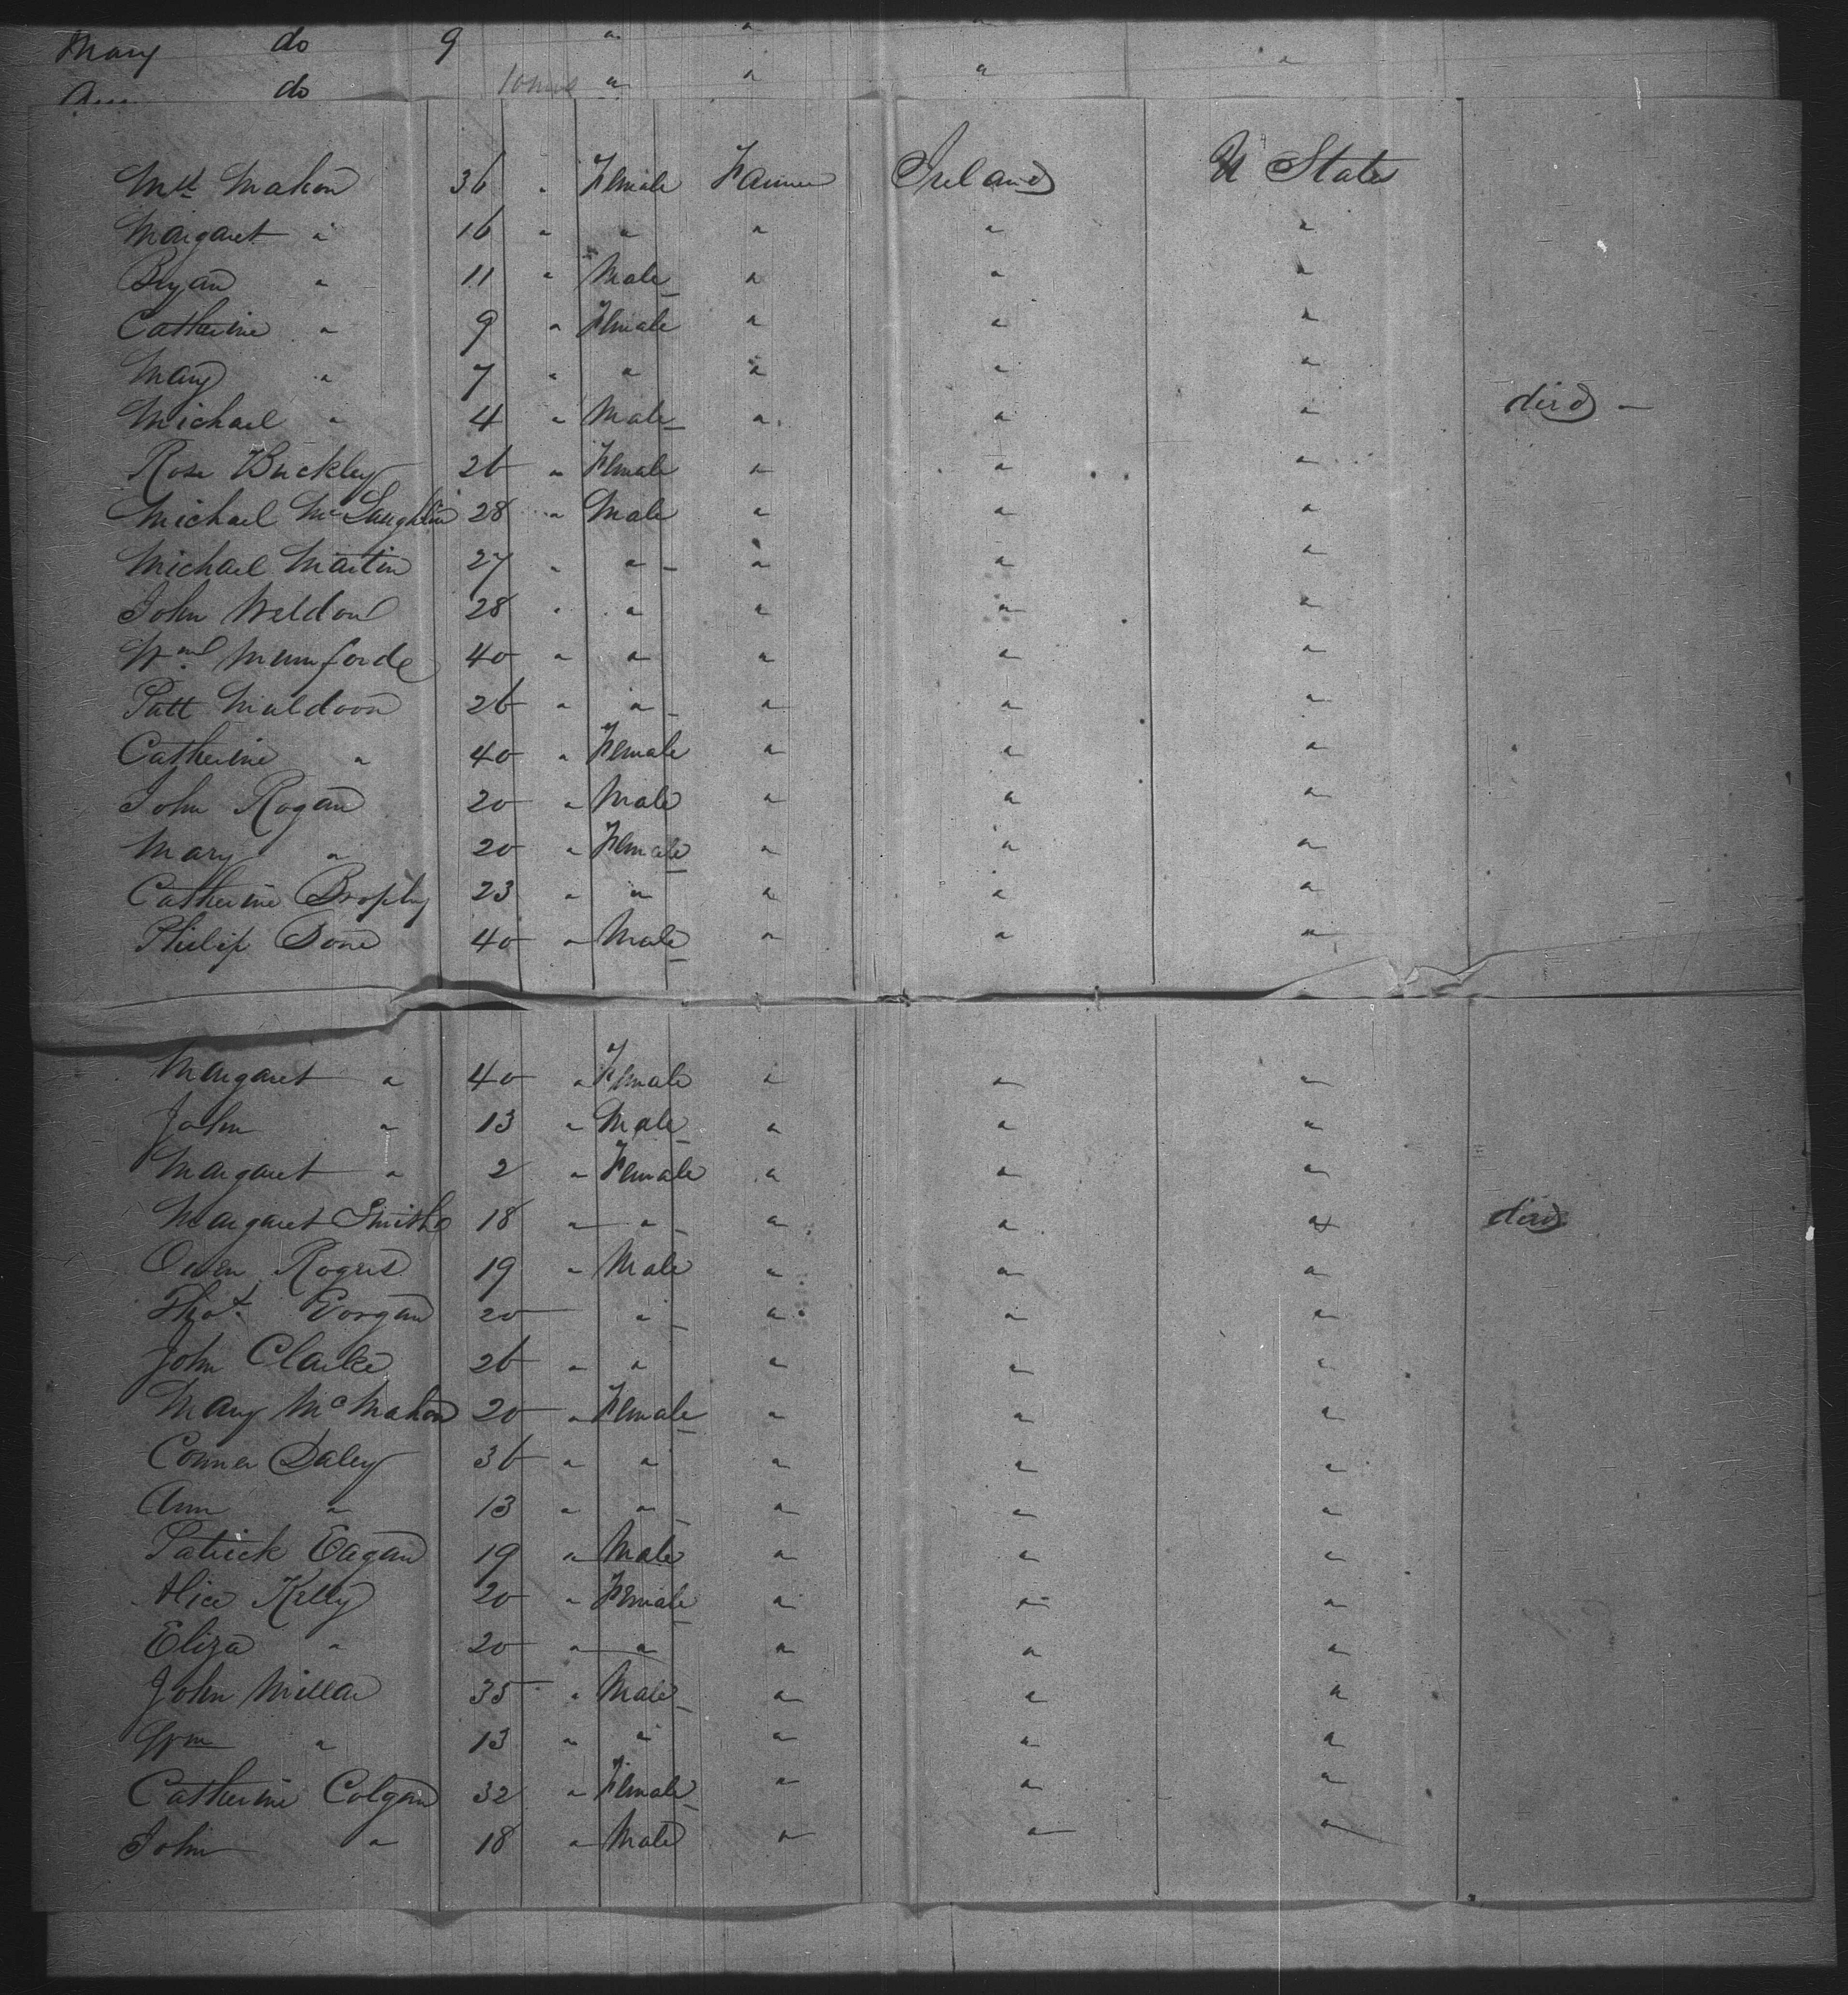 Mary do 9 " "
do 10 mos " " " "
Mtt Mahon 36 " Female Farmer Ireland U States
Margaret " 16 " " " " "
Bryan " 11 " Male " " "
Catherine " 9 " Female " " "
Mary " 7 " " " " "
Michael " 4 " Male " " " died
Rose Buckley 26 " Female " " "
Michael McLaughlin 28 " Male " " "
Michael Martin 27 " " " " "
John Weldon 28 " " " " "
Wm Mumforde 40 " " " " "
Patt Muldoon 26 " " " " "
Catherine " 40 " Female " " "
John Rogan 20 " Male " " "
Mary " 20 " Female " " "
Catherine Brophy 23 " " " " "
Philip Done 40 " Male " " "
Margaret " 40 " Female " " "
John " 13 " Male " " "
Margaret " 2 " Female " " "
Margaret Smith 18 " " " " " died
Owen Rogers 19 " Male " " "
Thos 20 " " " "
John Clarke 26 " " " " "
Mary McMahon 20 " Female " " "
Conner Daley 36 " " " " "
Ann " 13 " " " " "
Patrick Eagan 19 " Male " " "
Alice Kelly 20 " Female " " "
Eliza " 20 " " " " "
John Millar 35 " Male " " "
" 13 " " " " "
Catherine Colgan 32 " Female " " "
John " 18 " Male " " "